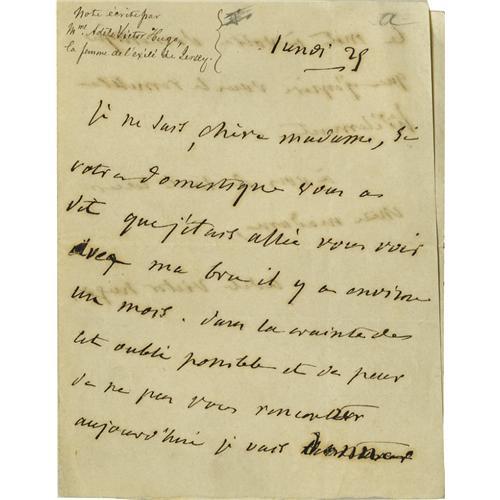 Note écrite par
Mme Adèle Victor Hugo,
la femme de l'exilé de Jersey.
a
lundi 29
je ne sais, chère madame, si
votre domestique vous a
dit que j'étais allée vous voir
avec ma bru il y a environ
un mois. dans la crainte de
cet oubli possible et de peur
de ne pas vous rencontrer
aujourd'hui je vais